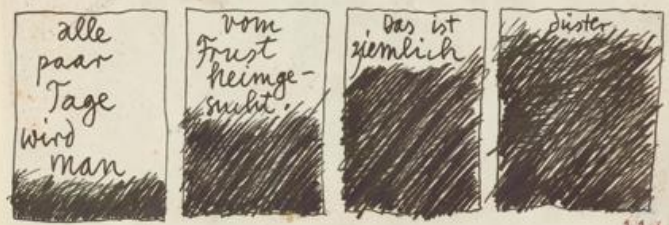 alle
paar
Tage
wird
man
vom
Frust
heimge-
sucht.
Das ist
ziemlich
düster